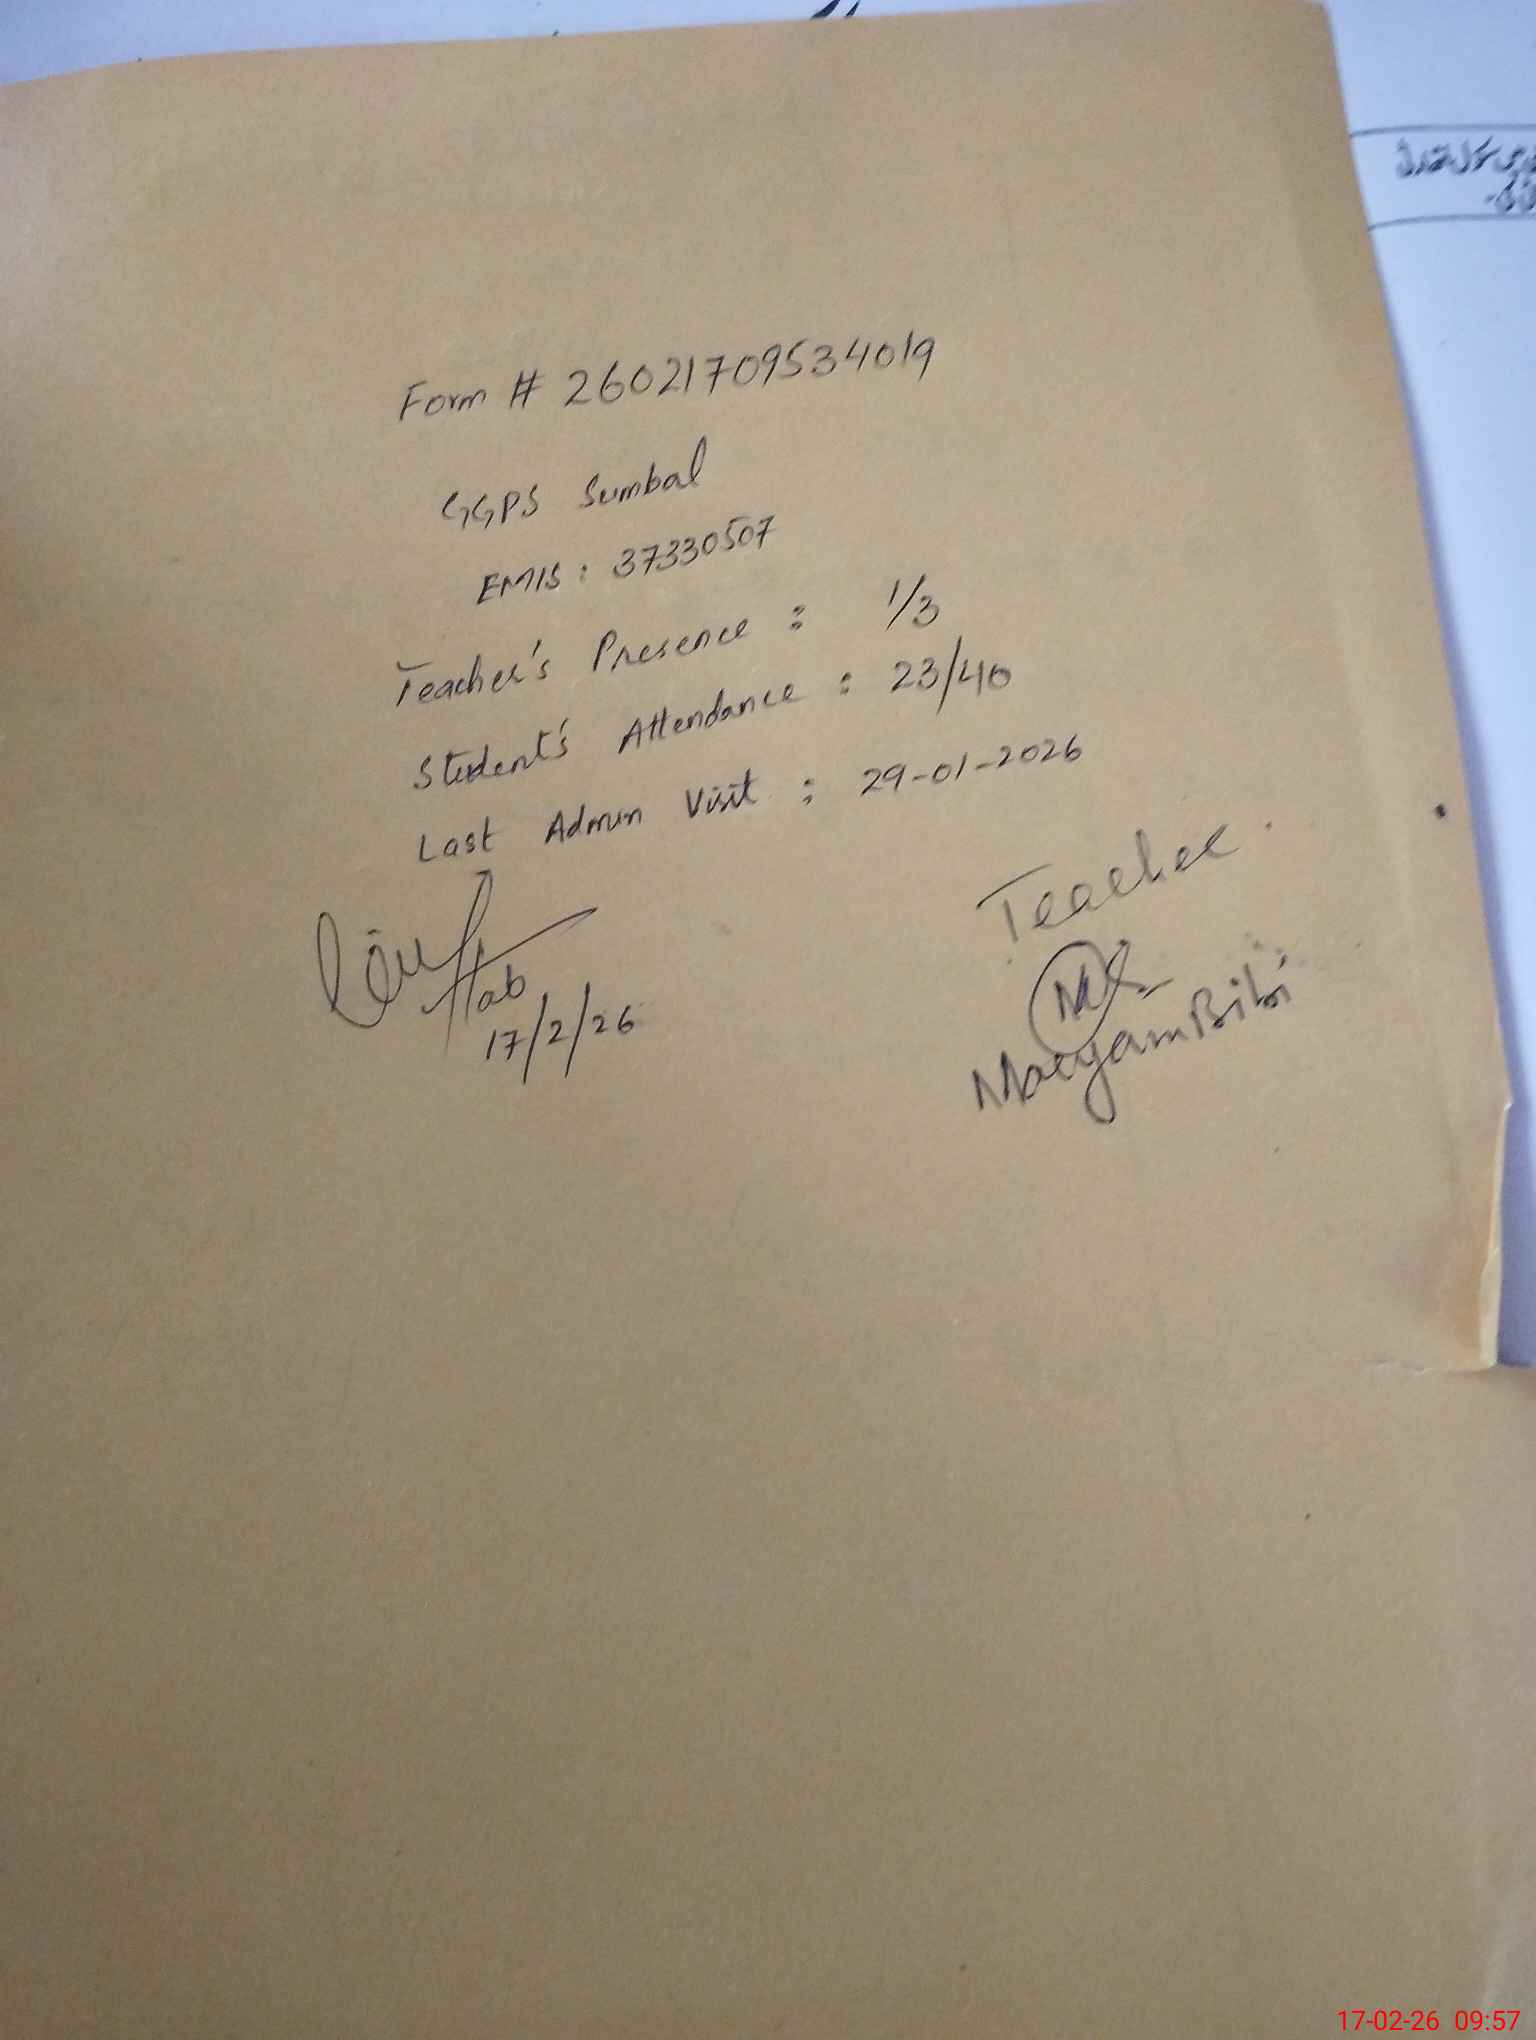 Form # 26021709534019
GGPS Sumbal
EMIS : 37330507
Teacher's Presence : 1/3
Student's Attendance : 23/40
Last Admin Visit : 29-01-2026
Teacher.
Maryam Bibi
17/2/26
17-02-26 09:57